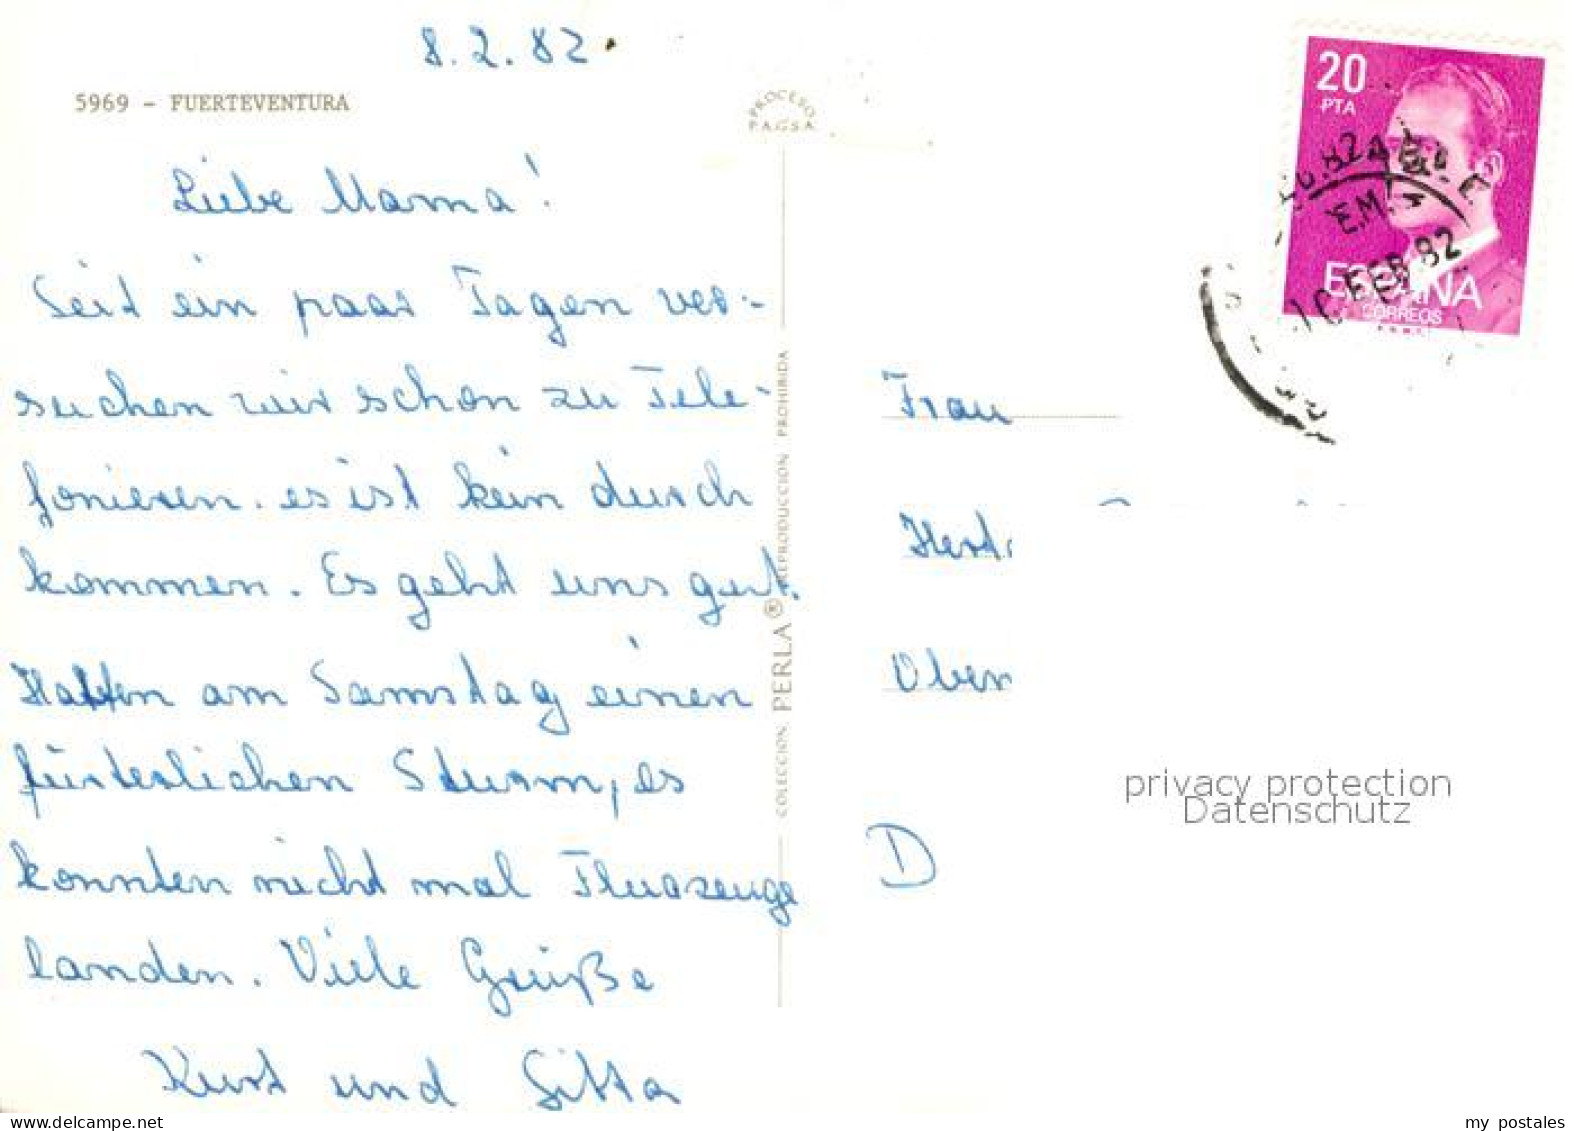 8.2.82
5969 - FUERTEVENTURA
PROCESO
P.A.G.S.A.
20
PTA
ESPAÑA
CORREOS
10 FEB 82
Liebe Mama!
Seit ein paar Tagen ver-
suchen wir schon zu Tele-
fonieren. es ist kein durch
kommen. Es geht uns gut.
Hatten am Samstag einen
fürterlichen Sturm, es
konnten nicht mal Flugzeuge
landen. Viele Grüße
Kurt und Gitta
COLECCION PERLA® REPRODUCCION PROHIBIDA
Frau
D
privacy protection
Datenschutz
delcampe.net
my postales